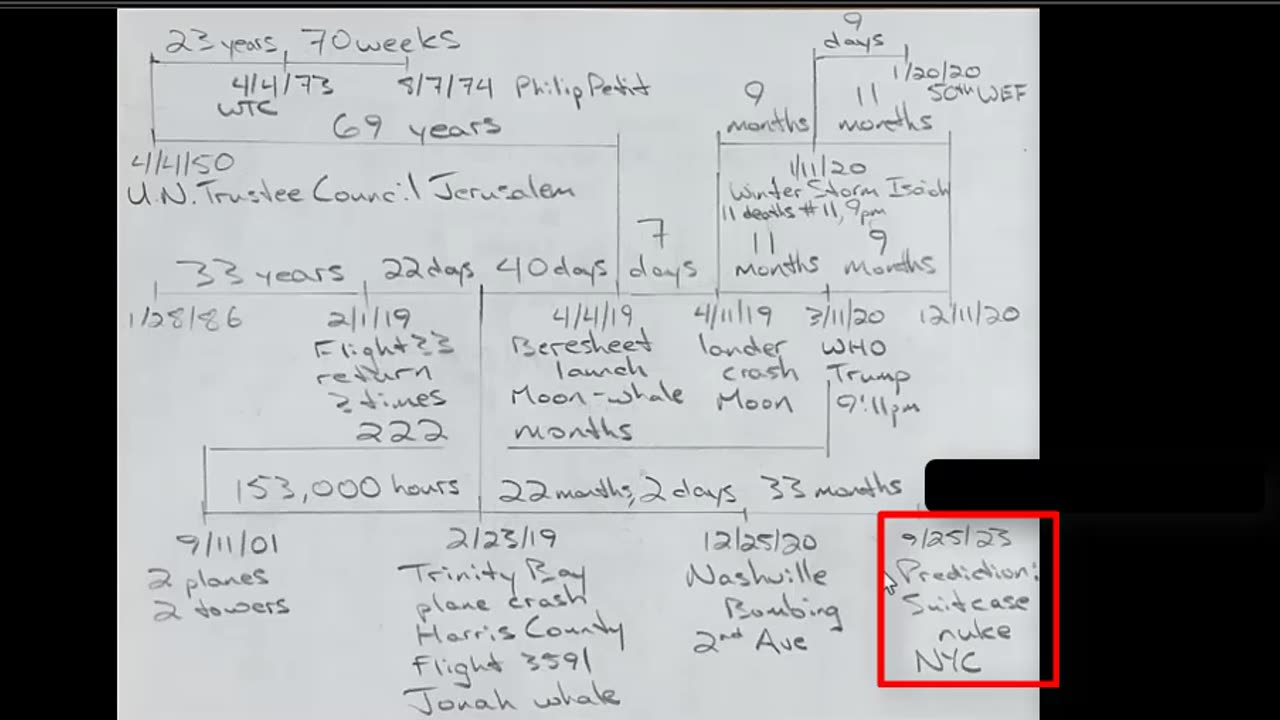 9
days
23 years, 70 weeks
4/4/73
8/7/74 Philip Petit
WTC
1/20/20
50th WEF
9
months
11
months
69 years
4/4/50
U.N. Trustee Council Jerusalem
1/11/20
Winter Storm Isaiah
11 deaths #11, 9pm
7
days
11
months
9
months
33 years
22 days
40 days
1/28/86
2/1/19
4/4/19
4/11/19
3/11/20
12/11/20
Flight 33
return
2 times
222
Beresheet
launch
Moon-whale
months
lander
crash
Moon
WHO
Trump
9:11pm
153,000 hours
22 months, 2 days
33 months
9/11/01
2 planes
2 towers
2/23/19
Trinity Bay
plane crash
Harris County
Flight 3591
Jonah whale
12/25/20
Nashville
Bombing
2nd Ave
9/25/23
Prediction:
Suitcase
nuke
NYC